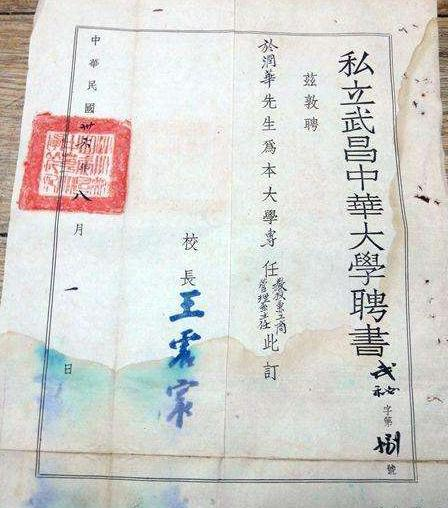 私立武昌中華大學聘書
秘字第捌號
茲敦聘
於潤華先生爲本大學專任教授兼工商管理系主任此訂
校長王震寰
中華民國卅年八月一日